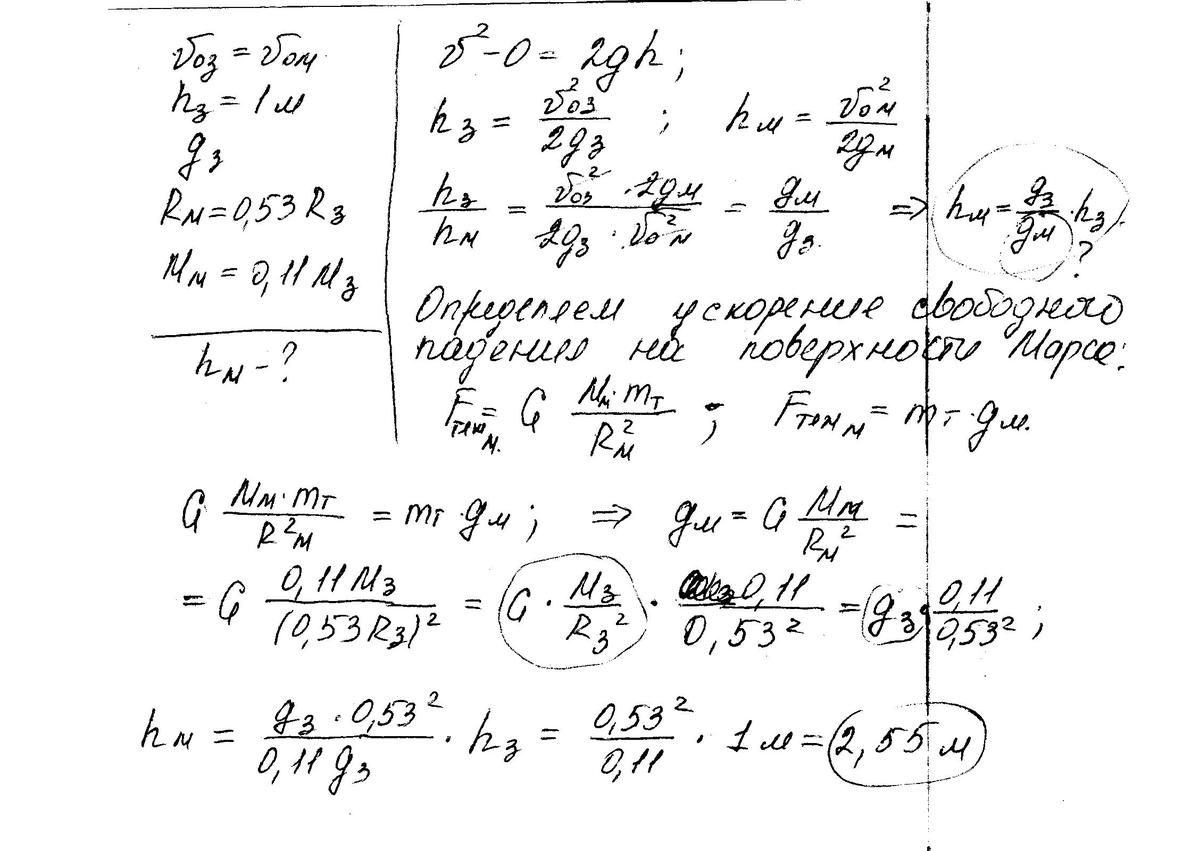 v₀з = v₀м
hз = 1 м
gз
Rм = 0,53 Rз
Mм = 0,11 Mз
hм - ?
v² - 0 = 2gh;
hз = v₀з² / 2gз ; hм = v₀м² / 2gм
hз / hм = v₀з² · 2gм / 2gз · v₀м² = gм / gз. ⇒ hм = gз / gм · hз).
?
Определяем ускорение свободного
падения на поверхности Марса:
Fтяж м. = G Mм · mт / Rм² ; Fтяж м = mт · gм.
G Mм · mт / R²м = mт · gм ; ⇒ gм = G Mм / Rм² =
= G 0,11 Mз / (0,53 Rз)² = G · Mз / Rз² · 0,11 / 0,53² = gз · 0,11 / 0,53² ;
hм = gз · 0,53² / 0,11 gз · hз = 0,53² / 0,11 · 1 м = 2,55 м